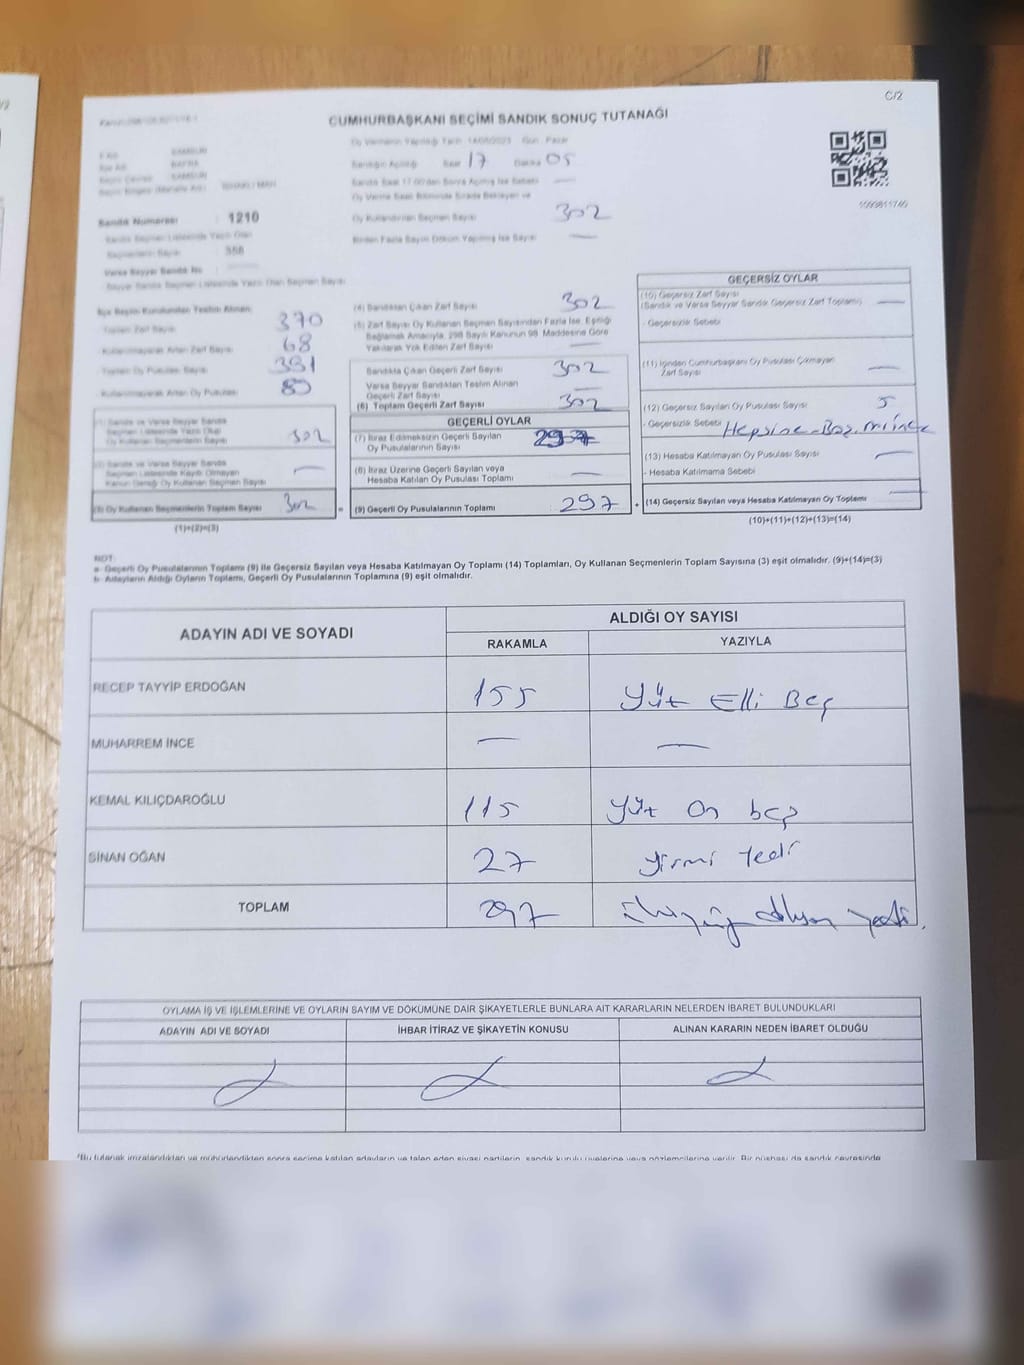 C/2
CUMHURBAŞKANI SEÇİMİ SANDIK SONUÇ TUTANAĞI
Oy Vermenin Yapıldığı Tarih 14/05/2023 Gün Pazar
Sandığın Açıldığı Saat 17 Dakika 05
SAMSUN
BAFRA
SAMSUN
Oy Kullandırılan Seçmen Sayısı 302
1093811740
Sandık Numarası : 1210
Birden Fazla Sayım Döküm Yapılmış İse Sayısı —
Sandık Seçmen Listesinde Yazılı Olan
Seçmenlerin Sayısı
Varsa Seyyar Sandık No
Seyyar Sandık Seçmen Listesinde Yazılı Olan Seçmen Sayısı
İlçe Seçim Kurulundan Teslim Alınan:
Toplam Zarf Sayısı 370
Kullanılmayarak Artan Zarf Sayısı 68
Toplam Oy Pusulası Sayısı 381
Kullanılmayarak Artan Oy Pusulası
(1) Sandık ve Varsa Seyyar Sandık
Seçmen Listesinde Yazılı Olup
Oy Kullanan Seçmenlerin Sayısı 302
(2) Sandık ve Varsa Seyyar Sandık
Seçmen Listesinde Kaydı Olmayan
Kanun Gereği Oy Kullanan Seçmen Sayısı —
(3) Oy Kullanan Seçmenlerin Toplam Sayısı 302
(1)+(2)=(3)
(4) Sandıktan Çıkan Zarf Sayısı 302
(5) Zarf Sayısı Oy Kullanan Seçmen Sayısından Fazla İse, Eşitliği
Sağlamak Amacıyla, 298 Sayılı Kanunun 98. Maddesine Göre
Yakılarak Yok Edilen Zarf Sayısı —
Sandıkta Çıkan Geçerli Zarf Sayısı 302
Varsa Seyyar Sandıktan Teslim Alınan
Geçerli Zarf Sayısı —
(6) Toplam Geçerli Zarf Sayısı 302
GEÇERLİ OYLAR
(7) İtiraz Edilmeksizin Geçerli Sayılan
Oy Pusulalarının Sayısı 297
(8) İtiraz Üzerine Geçerli Sayılan veya
Hesaba Katılan Oy Pusulası Toplamı —
= (9) Geçerli Oy Pusulalarının Toplamı 297
GEÇERSİZ OYLAR
(10) Geçersiz Zarf Sayısı
(Sandık ve Varsa Seyyar Sandık Geçersiz Zarf Toplamı) —
- Geçersizlik Sebebi
(11) İçinden Cumhurbaşkanı Oy Pusulası Çıkmayan
Zarf Sayısı —
(12) Geçersiz Sayılan Oy Pusulası Sayısı 5
- Geçersizlik Sebebi
(13) Hesaba Katılmayan Oy Pusulası Sayısı —
- Hesaba Katılmama Sebebi
+ (14) Geçersiz Sayılan veya Hesaba Katılmayan Oy Toplamı —
(10)+(11)+(12)+(13)=(14)
NOT:
a- Geçerli Oy Pusulalarının Toplamı (9) ile Geçersiz Sayılan veya Hesaba Katılmayan Oy Toplamı (14) Toplamları, Oy Kullanan Seçmenlerin Toplam Sayısına (3) eşit olmalıdır. (9)+(14)=(3)
b- Adayların Aldığı Oyların Toplamı, Geçerli Oy Pusulalarının Toplamına (9) eşit olmalıdır.
ADAYIN ADI VE SOYADI
ALDIĞI OY SAYISI
RAKAMLA YAZIYLA
RECEP TAYYİP ERDOĞAN 155 Yüz Elli Beş
MUHARREM İNCE — —
KEMAL KILIÇDAROĞLU 115 yüz On beş
SİNAN OĞAN 27 yirmi Yedi
TOPLAM 297 ikiyüz doksan yedi.
OYLAMA İŞ VE İŞLEMLERİNE VE OYLARIN SAYIM VE DÖKÜMÜNE DAİR ŞİKAYETLERLE BUNLARA AİT KARARLARIN NELERDEN İBARET BULUNDUKLARI
ADAYIN ADI VE SOYADI İHBAR İTİRAZ VE ŞİKAYETİN KONUSU ALINAN KARARIN NEDEN İBARET OLDUĞU